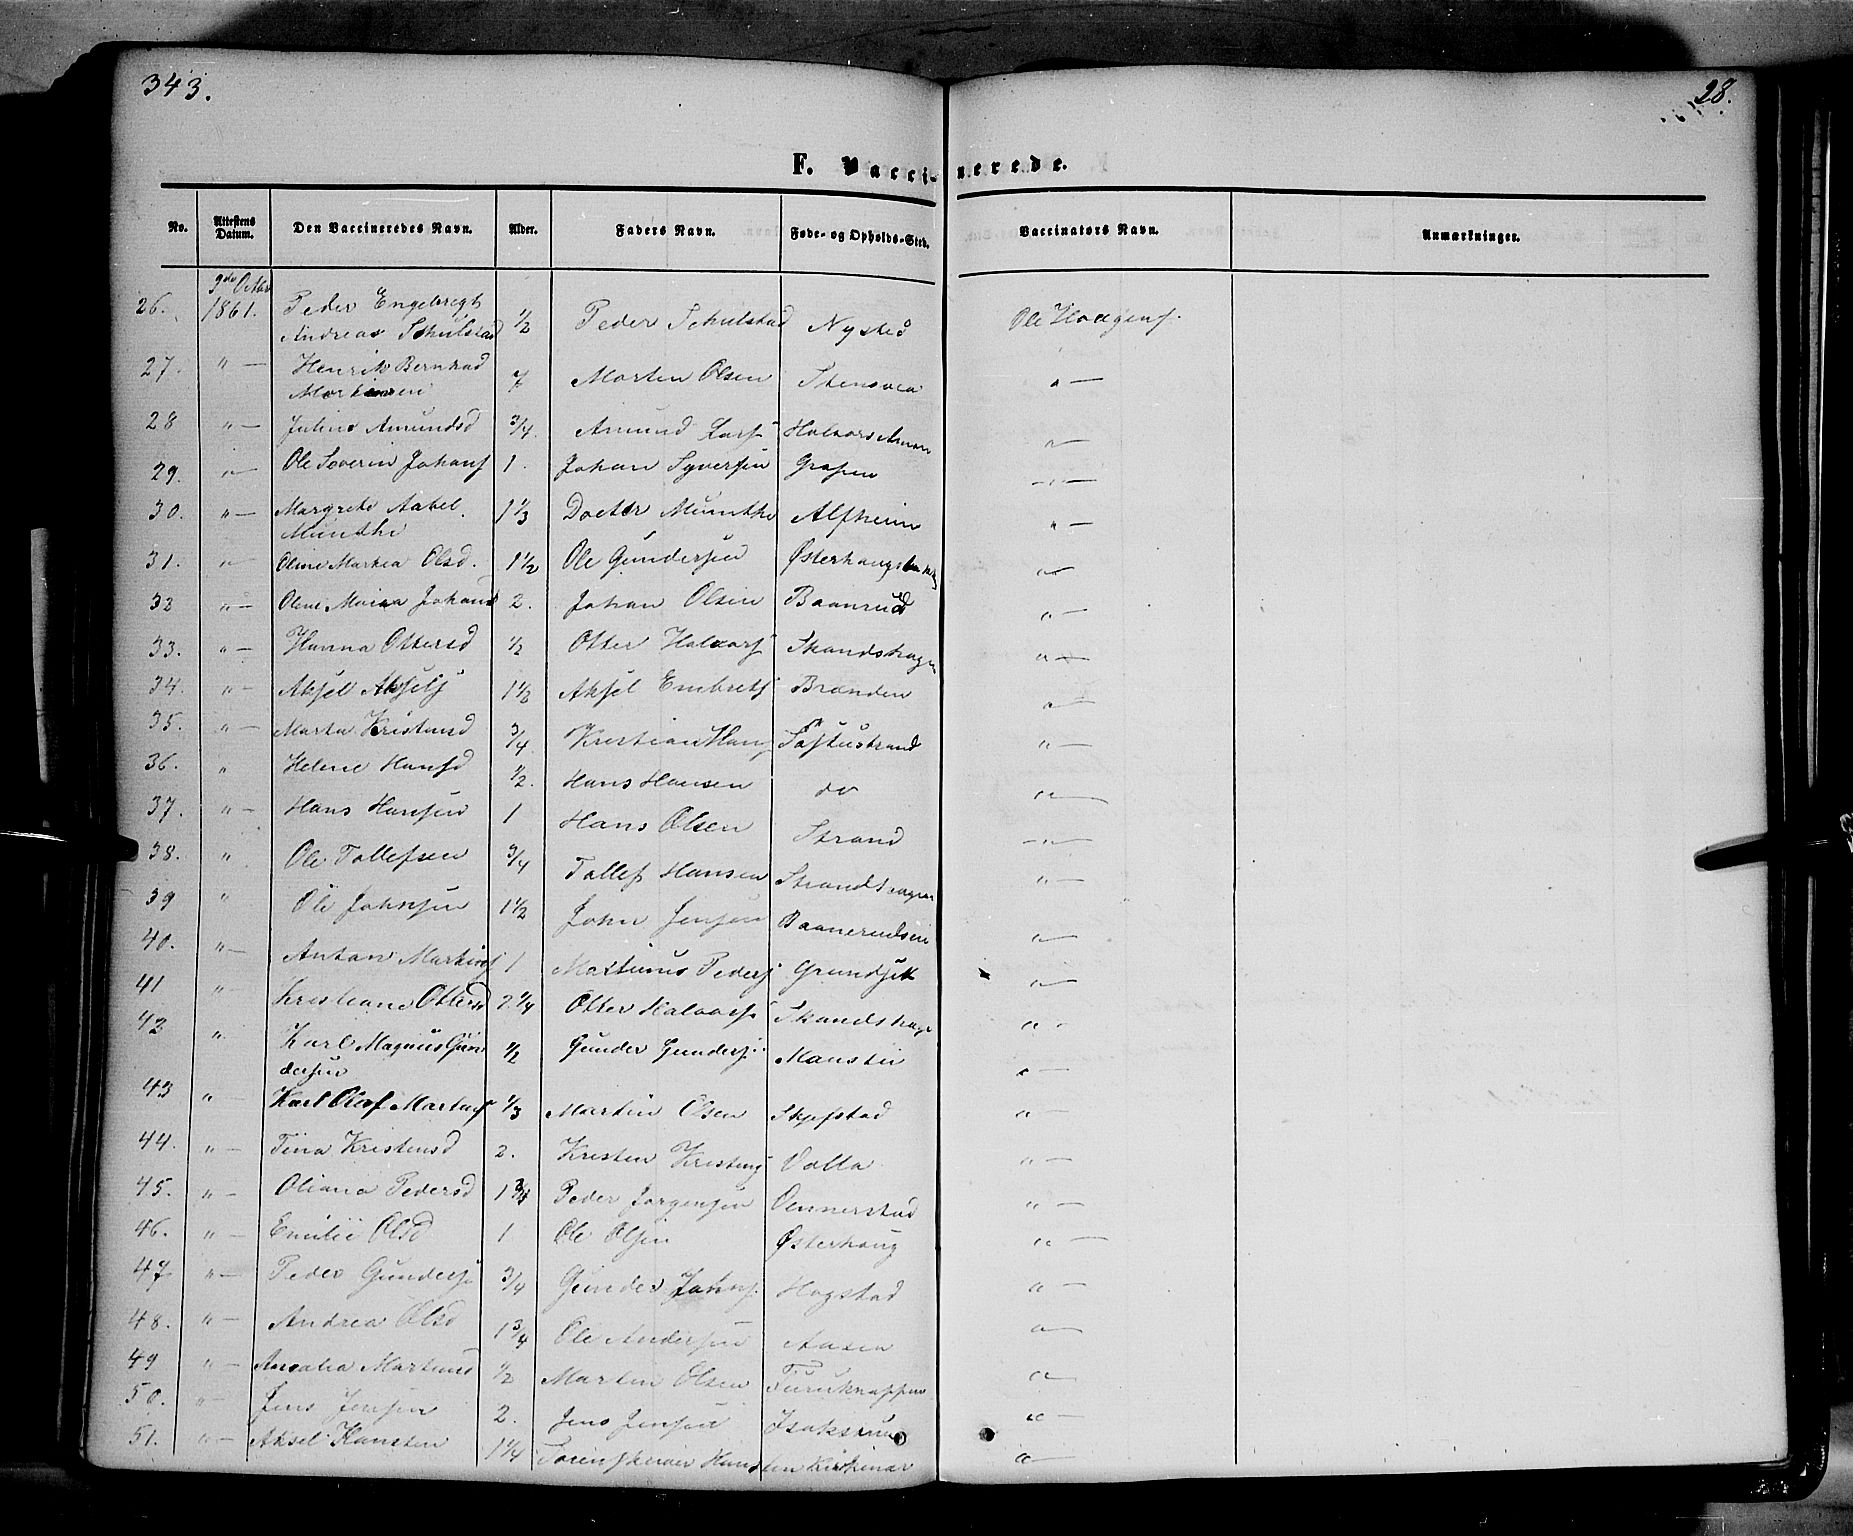 343.
28.
F. Vaccinerede.
No. Attestens Datum. Den Vaccineredes Navn. Alder. Faders Navn. Føde- og Opholds-Sted. Vaccinators Navn. Anmærkninger.
9de Octbr
26. 1861. Peder Engebregt Andreas Schulstad 1/2 Peder Schulstad Nysted Ole Haagens.
27. " — Henrik Bernhad Mortensen 7 Morten Olsen Stensvea " —
28 " — Julius Amundsd 3/4. Amund Lars Halvors " —
29. " — Ole Severin Johans 1. Johan Syversen Grasen — " —
30. " — Margrete Aabel Munthe 1 1/3 Doctor Munthe Alfheim " —
31. " — Oline Markea Olsd. 1 1/2 Ole Gundersen " —
32 " — Oline Maria Johans 2. Johan Olsen Baanrud " —
33. " — Hanna Ottersd 1/2 Otter Halvors " —
34. " — Aksel Aksels 1 1/2 Aksel Embrets Brænden " —
35. " — Marta Kristensd 3/4. Kristian " —
36. " Helene Hansd 1/2. Hans Hansen do " —
37. " — Hans Hansen 1 Hans Olsen Strand — " —
38. " Ole Tollefsen 3/4 Tollef Hansen " —
39 " Ole Johnsen 1 1/2 John Jensen Baanerudsei " —
40. " — Anton Martins 1 Martinus Peders Grundset " —
41 " — Kristiane Ottersd 2 1/4 Otter Halvors " -
42 " Karl Magnus Gundersen 1/2 Gunder Gunders Monstu " —
43 " — Karl Olaf Martins 1/3 Martin Olsen Skjefstad " —
44. " — Tina Kristensd 2. Kristen Kristens Valla " —
45. " — Oliana Pedersd 1 3/4 Peder Jørgensen Oennerstad " —
46. " — Emilie Olsd 1 Ole Olsen Østerhaug " —
47 " — Peder Gunders 3/4 Gunder Johns. Hogstad " —
48. " — Andrea Olsd 1 3/4 Ole Andersen Aasen " —
49 " — Martinsd 1/2 Martin Olsen Furuknappen " —
50. " — Jens Jensen 2. Jens Jensen " —
51. " — Aksel Hansten 1 1/4 " —